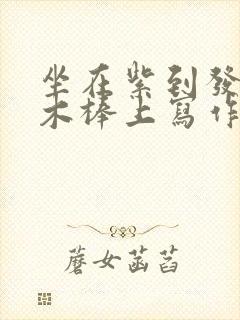 坐在紫到發
木棒上寫作
蘑女菡萏